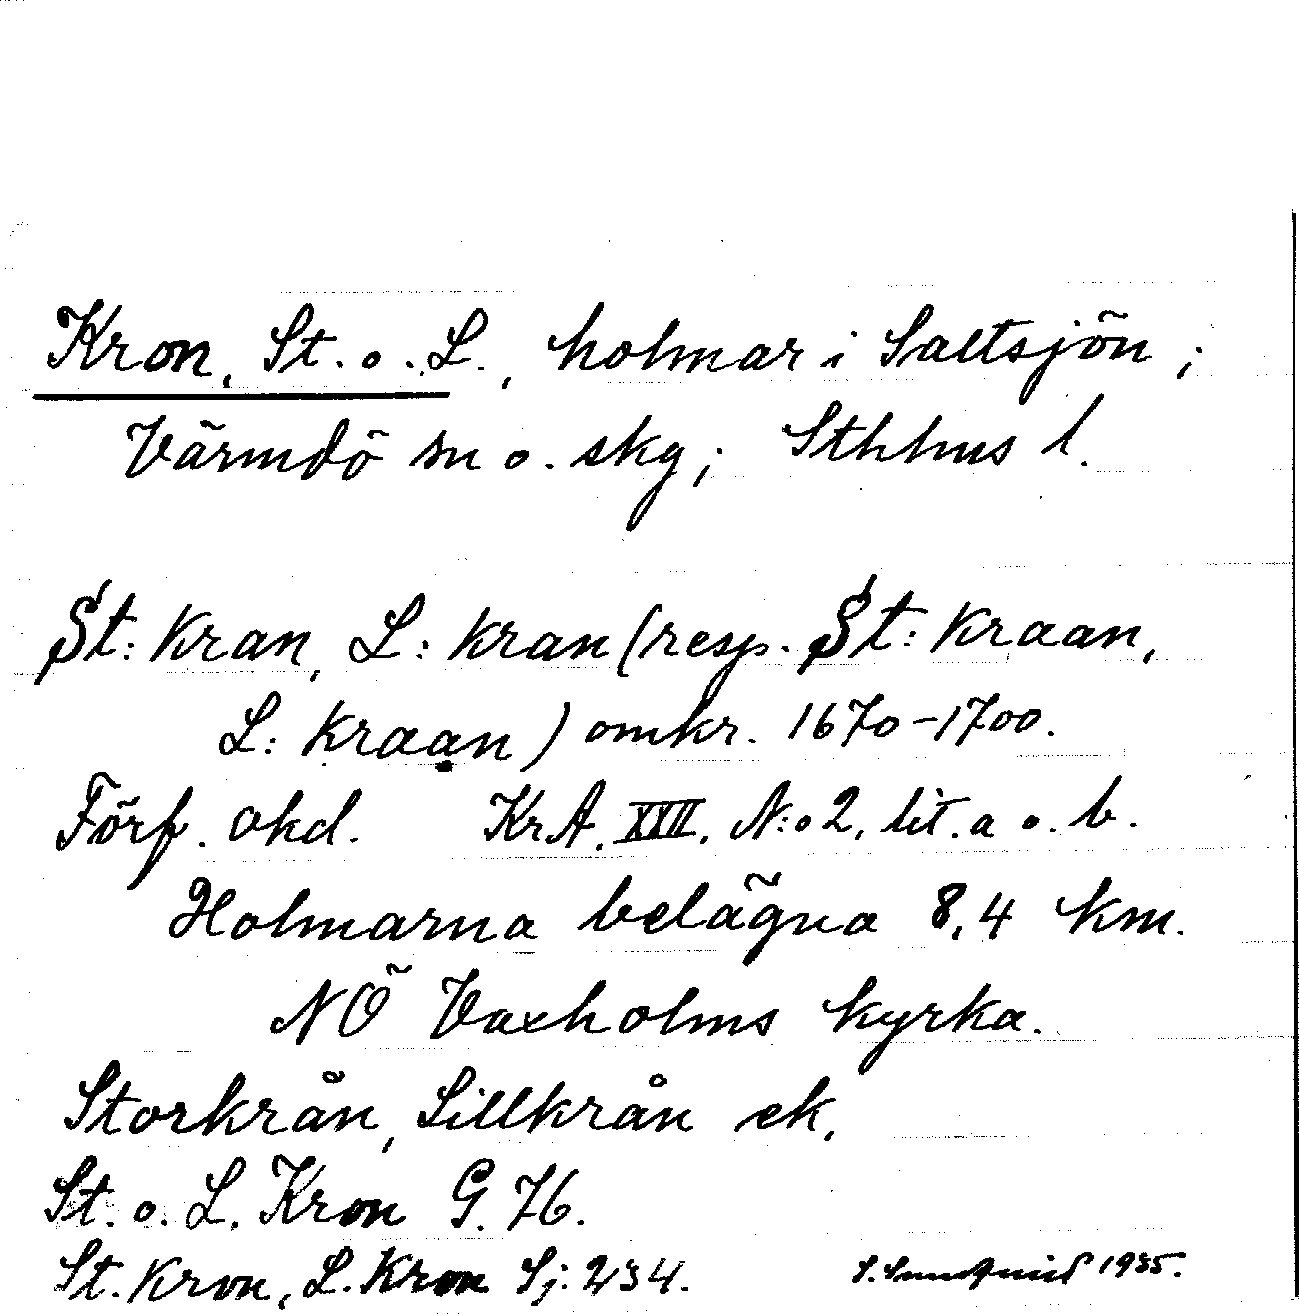 Kron, St. o. L., holmar i Saltsjön;
Värmdö sn o. skg; Sthlms l.
St: Kran, L: Kran (resp. St: Kraan,
L: Kraan) omkr. 1670-1700.
Förf. okd. KrA. XVII. N:o 2, lit. a o. b.
Holmarna belägna 8,4 km.
NÖ Vaxholms kyrka.
Storkrån, Lillkrån ek.
St. o. L. Kron G. 76.
St. Kron, L. Kron Sj. 234. S. Sundqvist 1935.